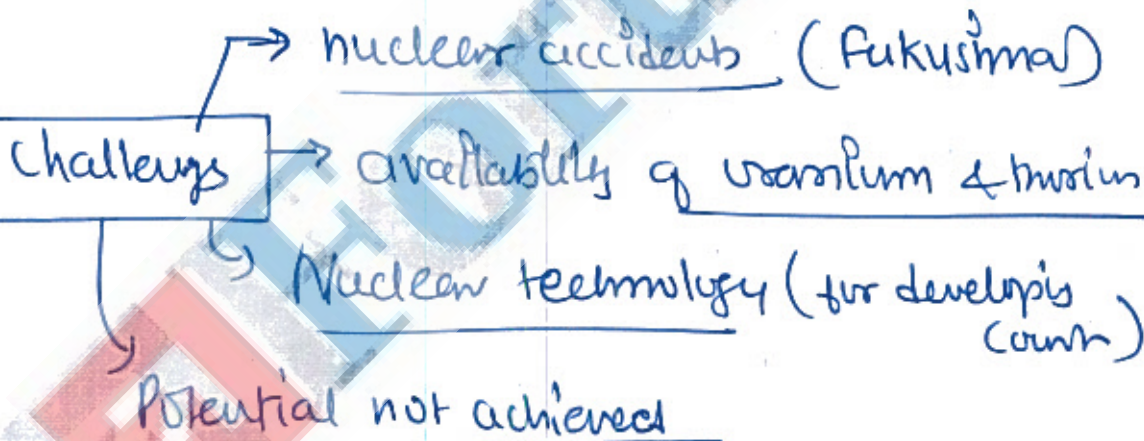 nuclear accidents (Fukushima)
Challenges
availability of uranium & thorium
Nuclear technology (for developing
Count)
Potential not achieved